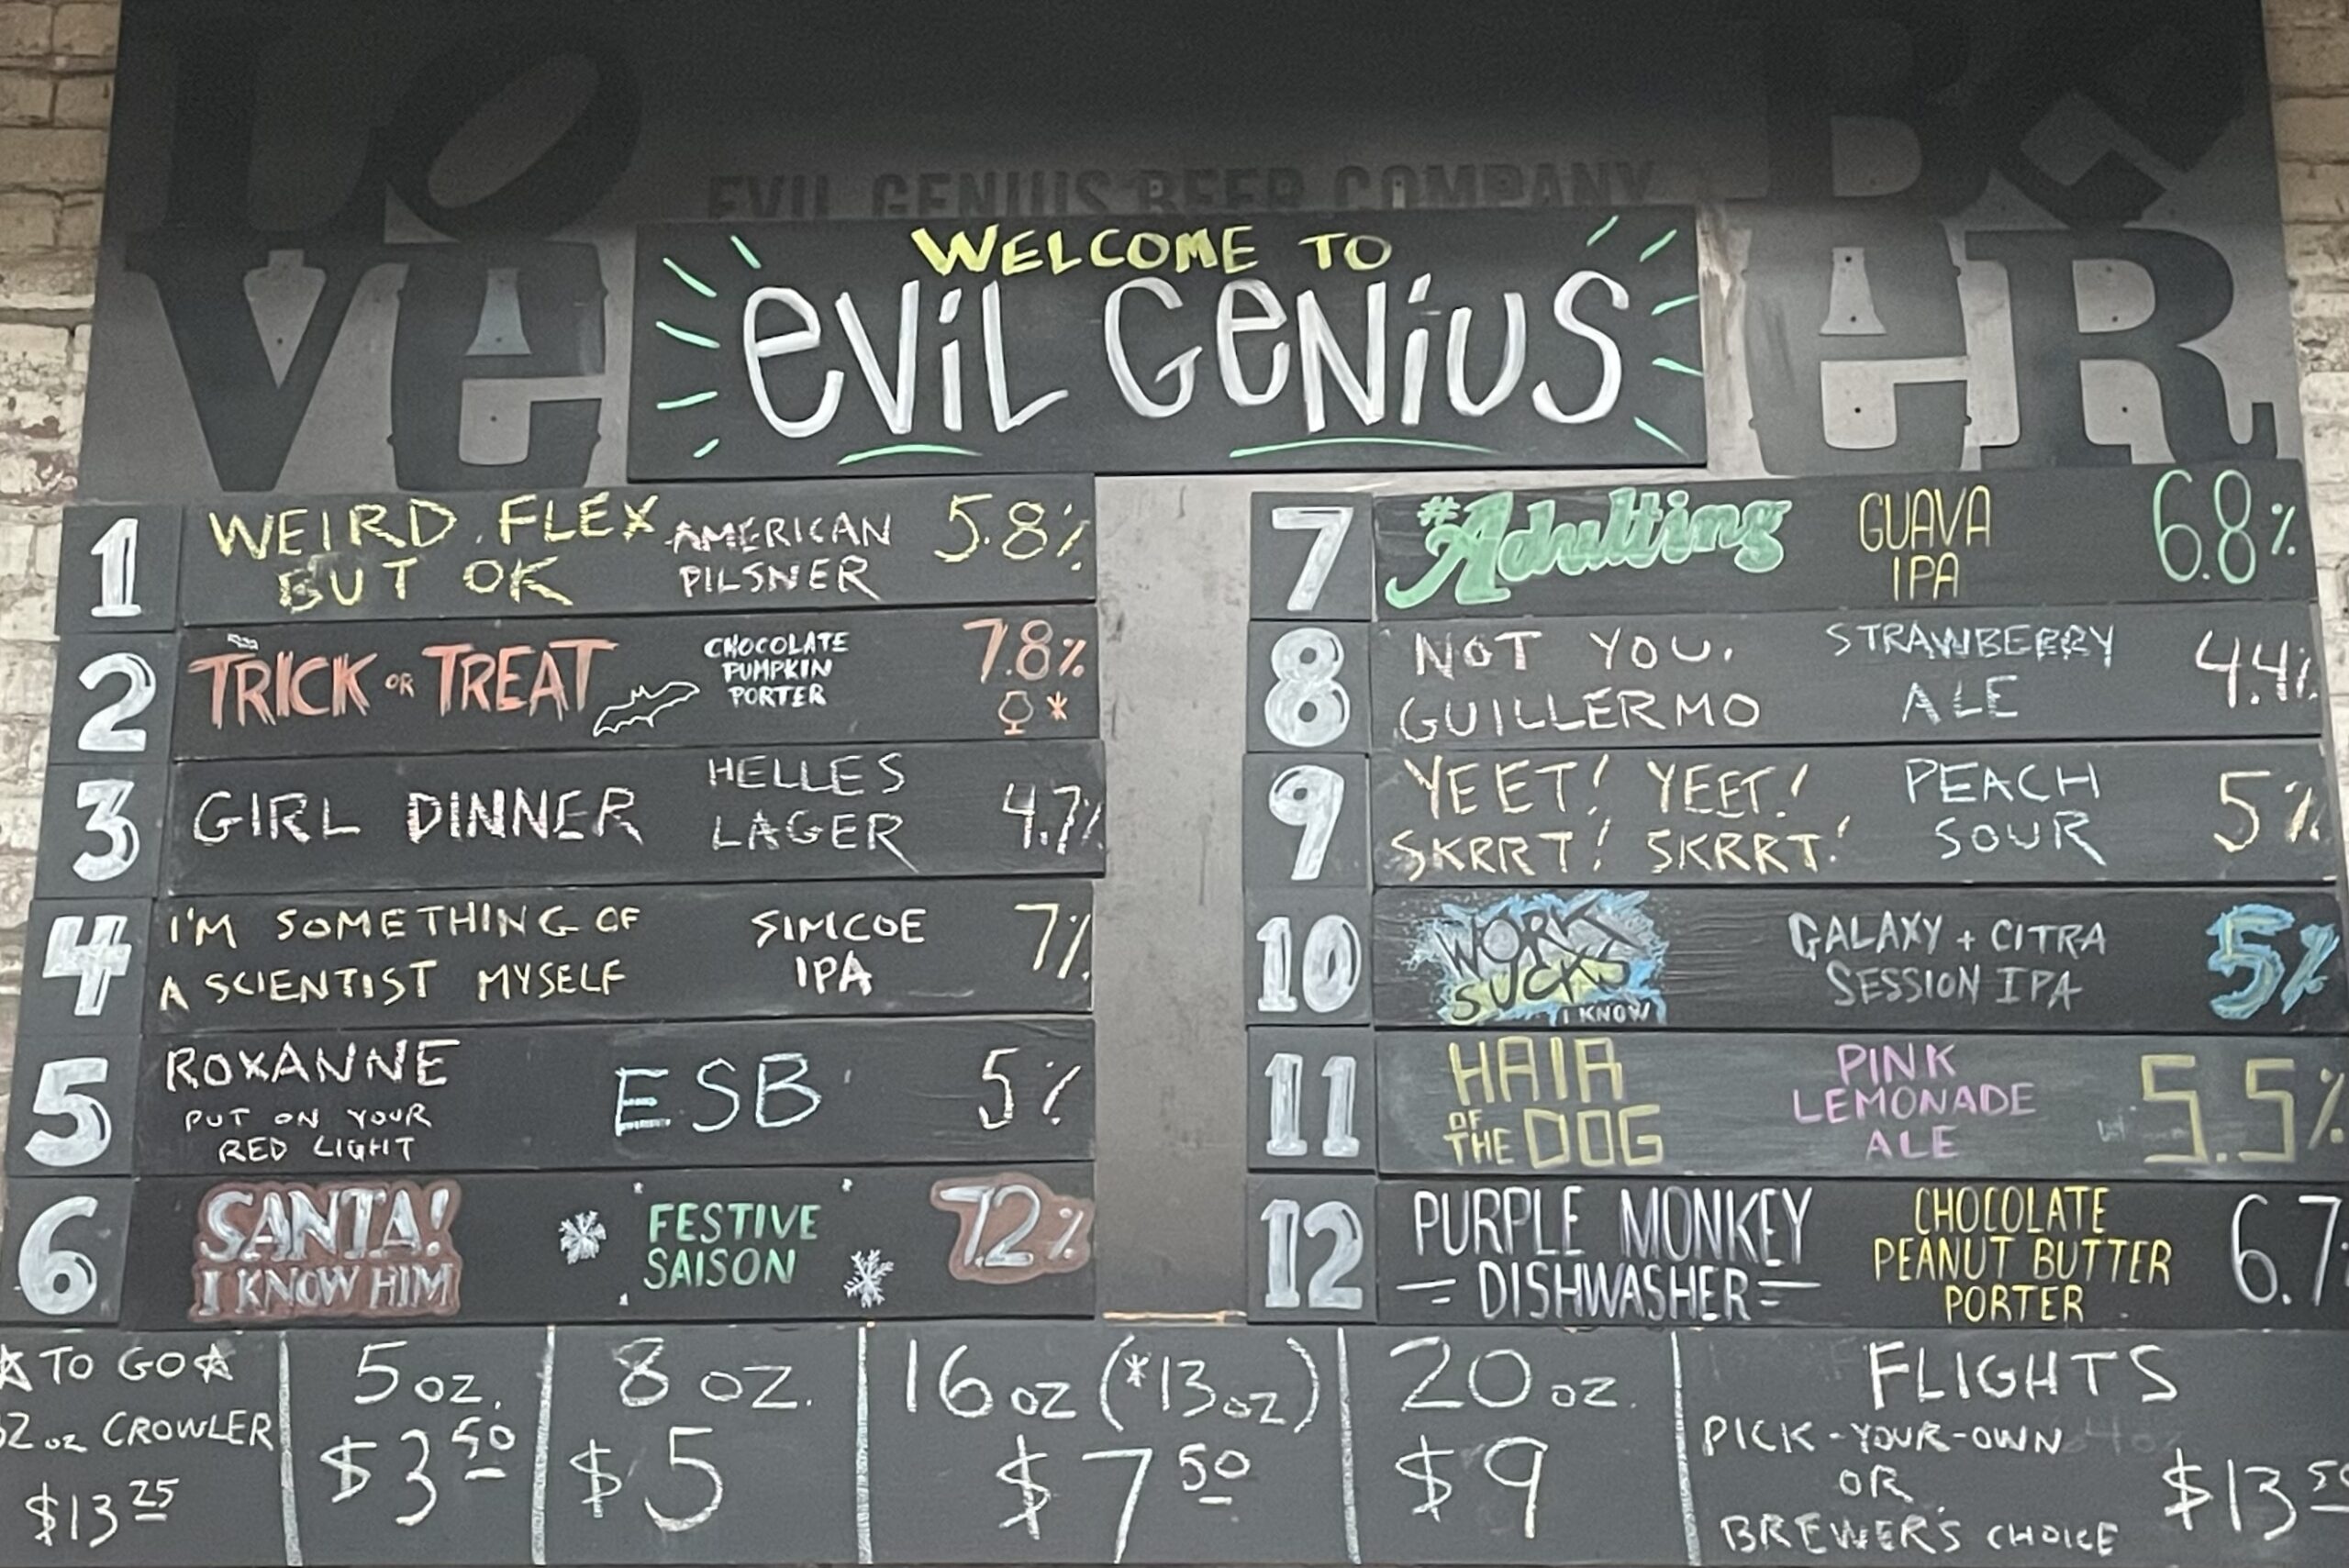 LOVE
BEER
EVIL GENIUS BEER COMPANY
WELCOME TO
EVIL GENIUS
1
WEIRD FLEX
BUT OK
AMERICAN
PILSNER
5.8%
2
TRICK OR TREAT
CHOCOLATE
PUMPKIN
PORTER
7.8%
*
3
GIRL DINNER
HELLES
LAGER
4.7%
4
I'M SOMETHING OF
A SCIENTIST MYSELF
SIMCOE
IPA
7%
5
ROXANNE
PUT ON YOUR
RED LIGHT
ESB
5%
6
SANTA!
I KNOW HIM
FESTIVE
SAISON
7.2%
7
#Adulting
GUAVA
IPA
6.8%
8
NOT YOU,
GUILLERMO
STRAWBERRY
ALE
4.4%
9
YEET! YEET!
SKRRT! SKRRT!
PEACH
SOUR
5%
10
WORK
SUCKS
I KNOW
GALAXY + CITRA
SESSION IPA
5%
11
HAIR
OF THE DOG
PINK
LEMONADE
ALE
5.5%
12
PURPLE MONKEY
DISHWASHER
CHOCOLATE
PEANUT BUTTER
PORTER
6.7
TO GO
oz CROWLER
$13.25
5 oz.
$3.50
8 oz.
$5
16 oz (*13 oz)
$7.50
20 oz.
$9
FLIGHTS
PICK-YOUR-OWN
OR
BREWER'S CHOICE
$13